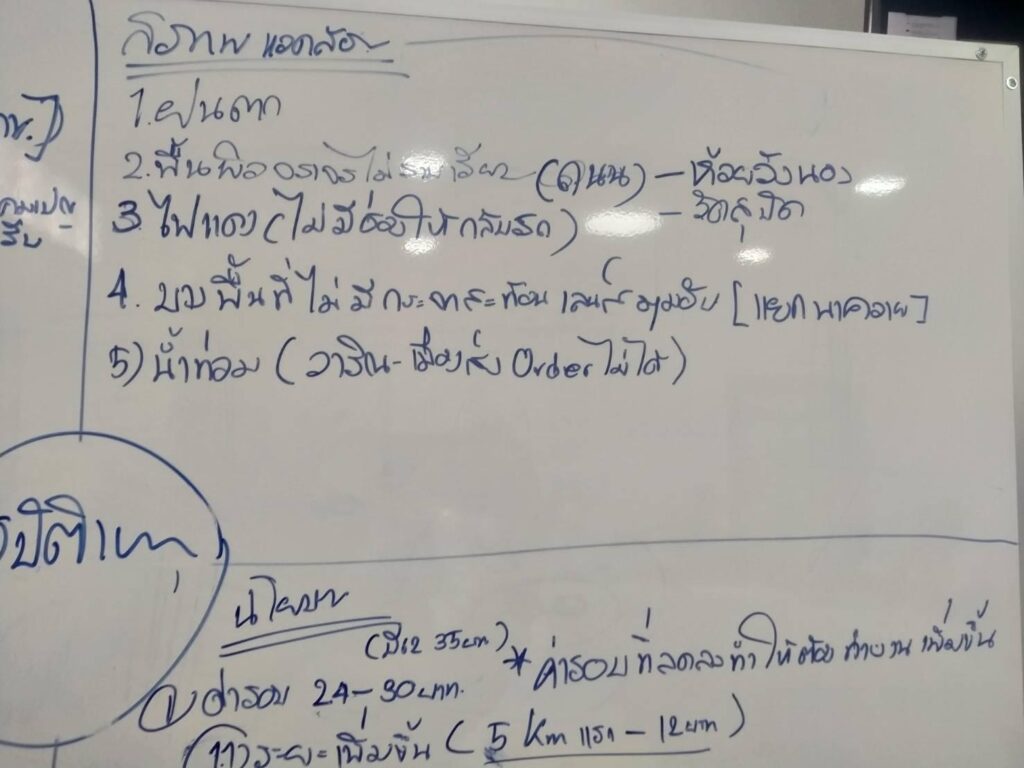 สภาพแวดล้อม
1. ฝนตก
2. พื้นผิวจราจรไม่ราบเรียบ (ถนน) - ห้วยวังนอง
- วัดสุปัด
3. ไฟแดง (ไม่มีช่องให้กลับรถ)
4. บางพื้นที่ไม่มีกระจกสะท้อน เลนส์ มุมอับ [แยก นาควาย]
5) น้ำท่วม (วาริน - เมือง ส่ง Order ไม่ได้)
อุบัติเหตุ
นโยบาย
(ปี62 35บาท)
① ค่ารอบ 24-30 บาท. * ค่ารอบที่ลดลงทำให้ต้องทำงานเพิ่มขึ้น
1.1) ระยะเพิ่มขึ้น (5 Km แรก - 12 บาท)